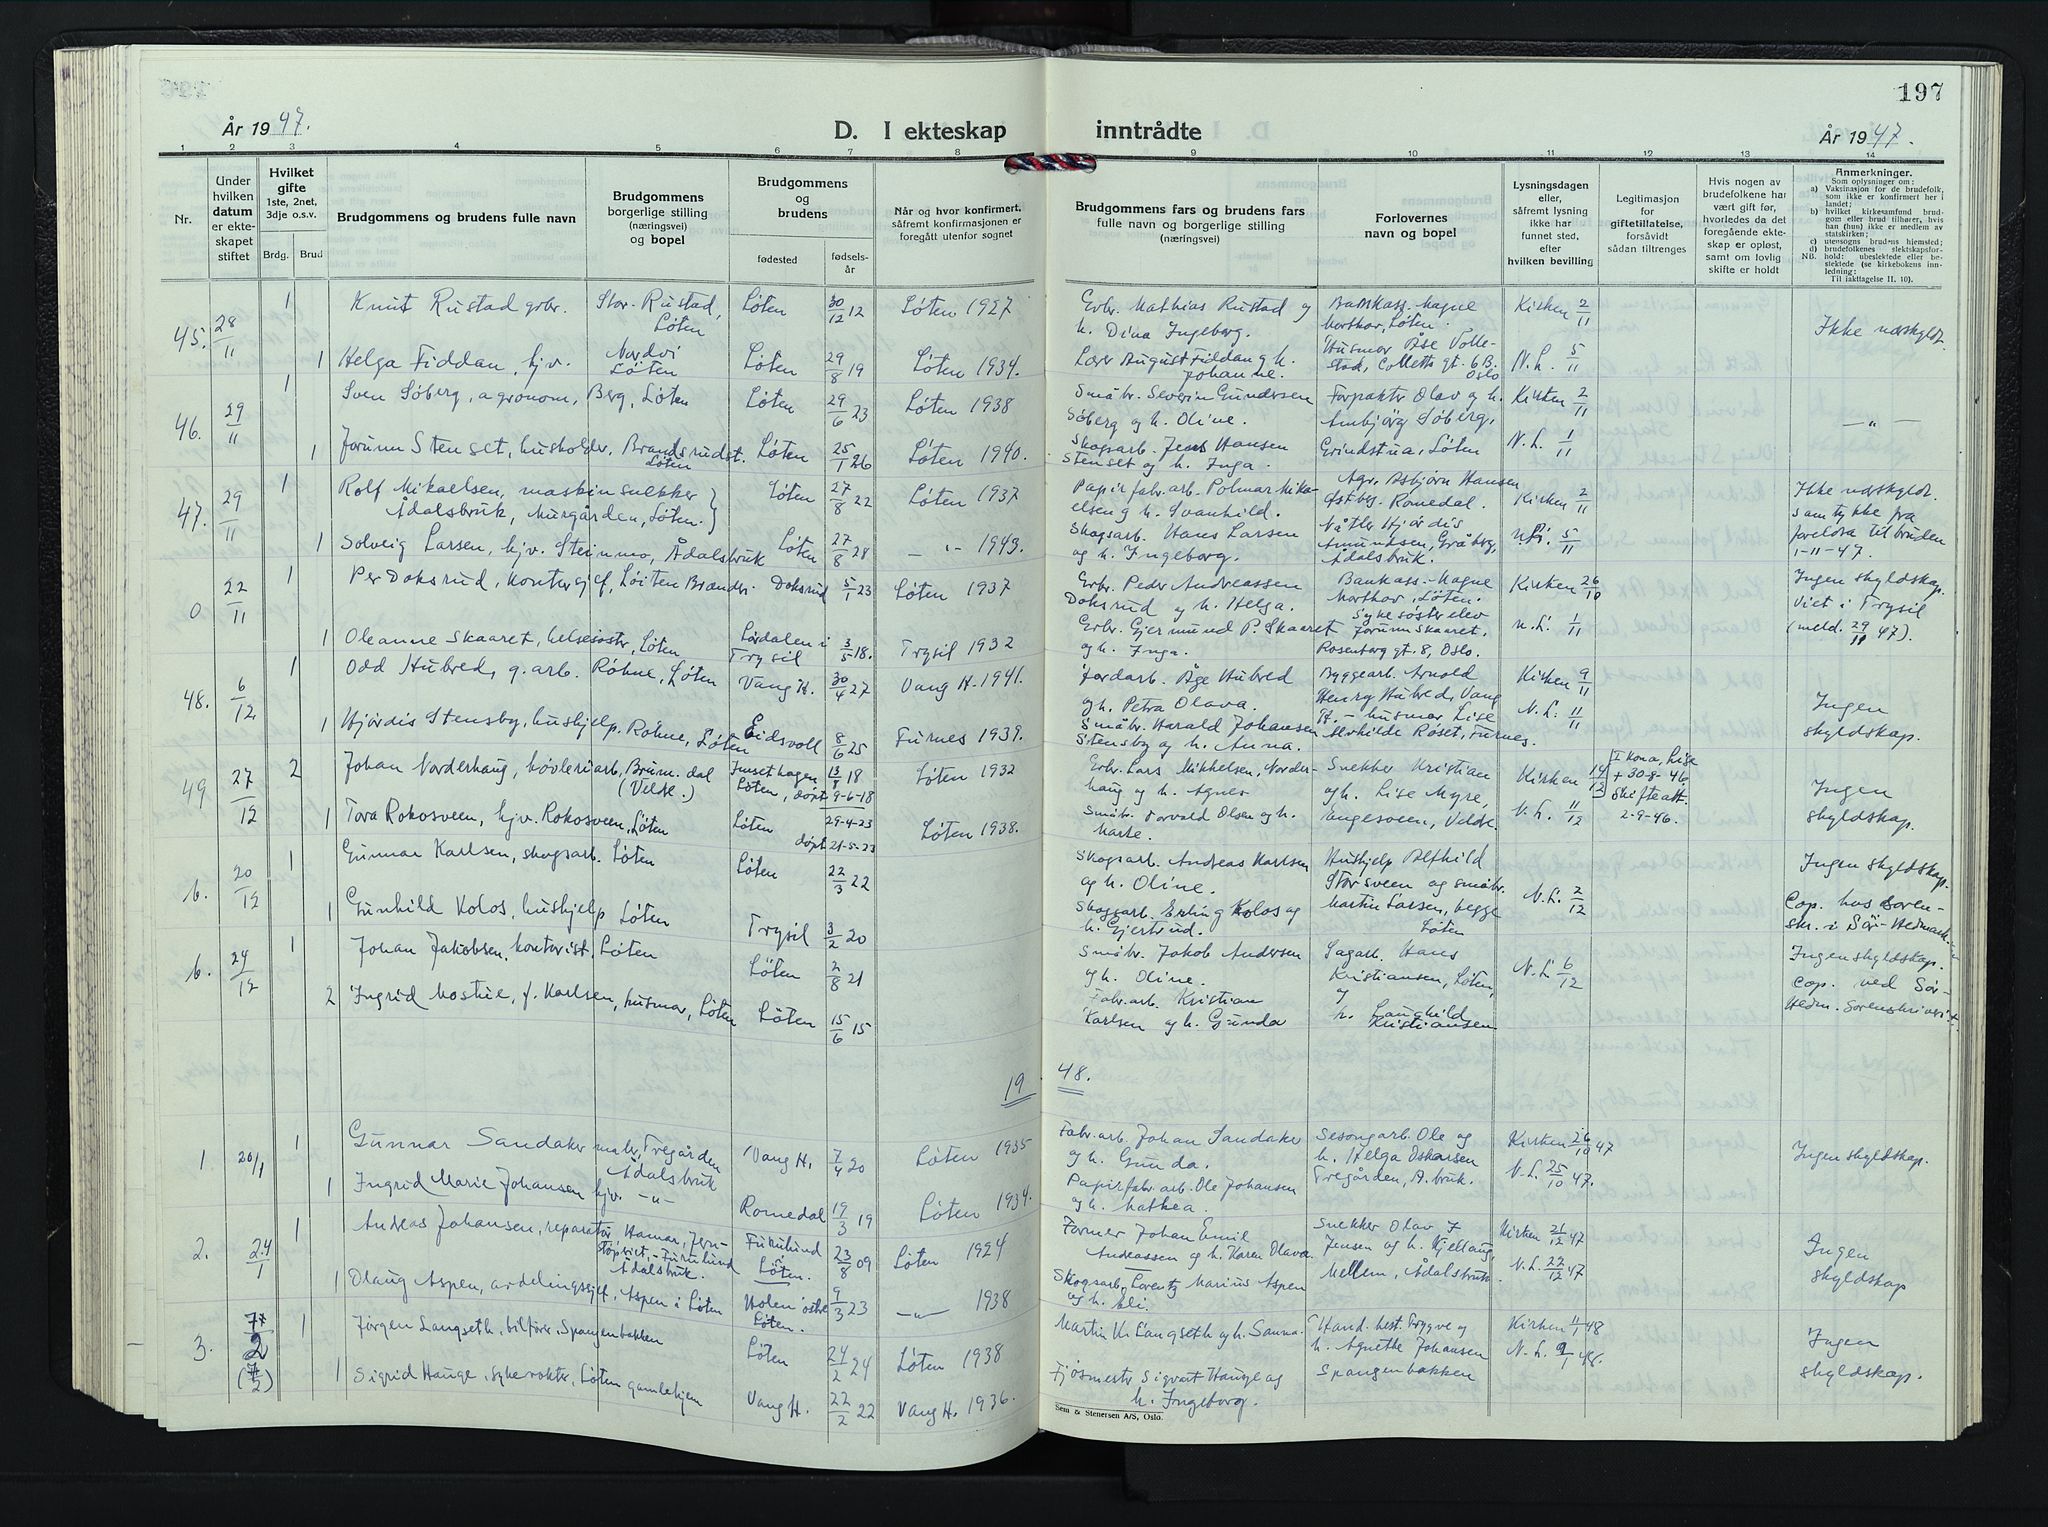 197
År 1947.
D. I ekteskap inntrådte
År 1947.
1 2 3 4 5 6 7 8 9 10 11 12 13 14
Nr.
Under hvilken datum er ekteskapet stiftet
Hvilket gifte 1ste, 2net, 3dje o.s.v.
Brdg. Brud
Brudgommens og brudens fulle navn
Brudgommens borgerlige stilling (næringsvei) og bopel
Brudgommens og brudens
fødested
fødselsår
Når og hvor konfirmert, såfremt konfirmasjonen er foregått utenfor sognet
Brudgommens fars og brudens fars fulle navn og borgerlige stilling (næringsvei)
Forlovernes navn og bopel
Lysningsdagen eller, såfremt lysning ikke har funnet sted, efter hvilken bevilling
Legitimasjon for giftetillatelse, forsåvidt sådan tiltrenges
Hvis nogen av brudefolkene har vært gift før, hvorledes da det foregående ekteskap er opløst, samt om lovlig skifte er holdt
Anmerkninger.
Som oplysninger om:
a) Vaksinasjon for de brudefolk, som ikke er konfirmert her i landet;
b) hvilket kirkesamfund brudgom eller brud tilhører, hvis han (hun) ikke er medlem av statskirken;
c) utensogns brudens hjemsted;
d) brudefolkenes slektskapsforhold: ubeslektede eller beslektede (se kirkebokens innledning:
NB. Til iakttagelse II. 10).
45. 28/11 1 Knut Rustad grbr. Stor-Rustad, Løten Løten 30/12 12 Løten 1927 Grbr. Mathias Rustad og h. Dina Ingeborg. Bankkass. Magne Morthov, Løten. Kirken 2/11 Ikke nærskyldt.
1 Helga Fiddan, hjv. Nordvi Løten Løten 29/8 19 Løten 1934. Lærer August Fiddan g h. Johanne. Husmor Åse Tollestad, Colletts gt. 6 B. Oslo N. L. 5/11
46. 29/11 1 Sven Søberg, agronom, Berg, Løten Løten 29/6 23 Løten 1938 Småbr. Severin Gundersen Søberg og h. Oline. Forpakter Olav og h. Ambjörg Søberg, Kirken 2/11 — „ —
1 Jorunn Stenset, husholder, Brandsrudst. Løten Løten 25/1 26 Løten 1940. Skogsarb. Jens Hansen Stenset og h. Inga. Grindstua, Løten N. L. 1/11
47. 29/11 1 Rolf Mikaelsen, maskinsnekker Ådalsbruk, Murgården, Løten. Løten 27/8 22 Løten 1937 Papirfabr. arb. Polmar Mikaelsen g h. Svanhild. Agr. Asbjørn Hansen Østbg. Romedal. Kirken 2/11 Ikke nærskyldt. Samtykke fra foreldra til bruden 1-11-47.
1 Solveig Larsen, hjv. Steinmo, Ådalsbruk Løten 27/8 28 — „ — 1943. Skogsarb. Hans Larsen og h. Ingeborg. Hjørdis Amundsen, Gråberg, Ådalsbruk. N. L. 5/11
0 22/11 1 Per Doksrud, kontorsjef, Løiten Brænderi. Doksrud 5/1 23 Løten 1937 Grbr. Peder Andreassen Doksrud g h. Helga. Bankkass. Magne Morthov, Løten. Kirken 26/10 Ingen skyldskap. Viet i Trysil (meld. 29/11 47).
1 Oleanne Skaaret, helsesøster, Løten Lørdalen i Trysil 3/5 18. Trysil 1932 Grbr. Gjermund P. Skaaret og h. Inga. Sykesøsterelev Jorunn Skaaret, Rosenborg gt. 8, Oslo. N. L. 1/11
48. 6/12 1 Odd Hubred, g. arb. Røhne, Løten Vang H. 30/4 27 Vang H. 1941. Jordarb. Åge Hubred g h. Petra Olava. Byggearb. Arnold Henry Hubred, Vang H. - husmor Lise Kirken 9/11 Ingen skyldskap.
1 Hjørdis Stensby, hushjelp. Røhne, Løten Eidsvoll 8/6 25 Furnes 1939. Småbr. Harald Johansen Stensby og h. Anna. Alvhilde Røset, Furnes. N. L. 11/11
49 27/12 2 Johan Norderhaug, høvleriarb, Brum. dal (Velse.) Jønsethagen Løten, døpt 9-6-18 13/1 18 Løten 1932 Grbr. Lars Mikkelsen, Norderhaug og h. Agnes Snekker Kristian g h. Lise Myre, Kirken 14/12 I kona, Lise + 30-8-46. Skifteatt. 2-9-46. Ingen skyldskap.
1 Tora Rokosveen, hjv. Rokosveen, Løten Løten 29-4-23 døpt 21-5-23 Løten 1938. Småbr. Torvald Olsen og h. Marte. Engesveen, Velse. N. L. 11/12
b. 20/12 1 Gunnar Karlsen, skogsarb. Løten Løten 22/3 22 Skogsarb. Andreas Karlsen og h. Oline. Hushjelp Alfhild Storsveen og småbr. Martin Larsen, begge Løten N. L. 2/12 Ingen skyldskap. Cop. hos sorenskr. i Sør-Hedmark.
1 Gunhild Kolos, hushjelp Løten Trysil 3/2 20 Skogsarb. Erling Kolos og h. Gjertrud.
b. 24/12 1 Johan Jakobsen, kontorist. Løten Løten 2/8 21 Småbr. Jakob Andersen og h. Oline. Sagarb. Hans Kristiansen, Løten, og h. Laughild Kristiansen N. L. 6/12 Ingen skyldskap. Cop. ved Sør-Hedm. Sorenskriveri
2 Ingrid Moshie, f. Karlsen, husmor, Løten Løten 15/6 15 Fabr. arb. Kristian Karlsen og h. Gunda
19 48.
1. 20/1 1 Gunnar Sandaker maler, Tregården Ådalsbruk Vang H. 7/4 20 Løten 1935 Fabr. arb. Johan Sandaker og h. Gunda. Sesongarb. Ole og h. Helga Oskarsen Kirken 26/10 47 Ingen skyldskap.
1 Ingrid Marie Johansen hjv. — „ — Romedal 19/3 19 Løten 1934. Papirfabr. arb. Ole Johansen og h. Mathea. Tregården, A. bruk. N. L. 25/10 47.
2. 24/1 1 Andreas Johansen, reparatør, Hamar, Jernstøperiet, - Furulund Ådalsbruk. Furulund Løten. 23/8 09 Løten 1924 Former Johan Emil Andreassen og h. Karen Olava. Snekker Olav J. Jensen og h. Kjellaug, Kirken 21/12 47 Ingen skyldskap
1 Olaug Aspen, avdelingssjef, Aspen i Løten Holen østre Løten. 9/3 23 — „ — 1938 Skogsarb. Lorentz Marius Aspen og h. Eli. Mellem, Ådalsbruk. N. L. 22/12 47
3. 7/2 (7/2) 1 Jørgen Langseth, bilfører, Spangenbakken Løten 24/2 24 Løten 1938 Martin K. Langseth og h. Sanna. Hand. best. Trygve og h. Agnethe Johansen Kirken 11/1 48 Ingen skyldskap.
1 Sigrid Hauge, sykerøkter, Løten gamlehjem Vang H. 22/2 22 Vang H. 1936. Fjøsmester Sigvart Hauge og h. Ingeborg. Spangenbakken N. L. 9/1 48.
Sem & Stenersen A/S, Oslo.